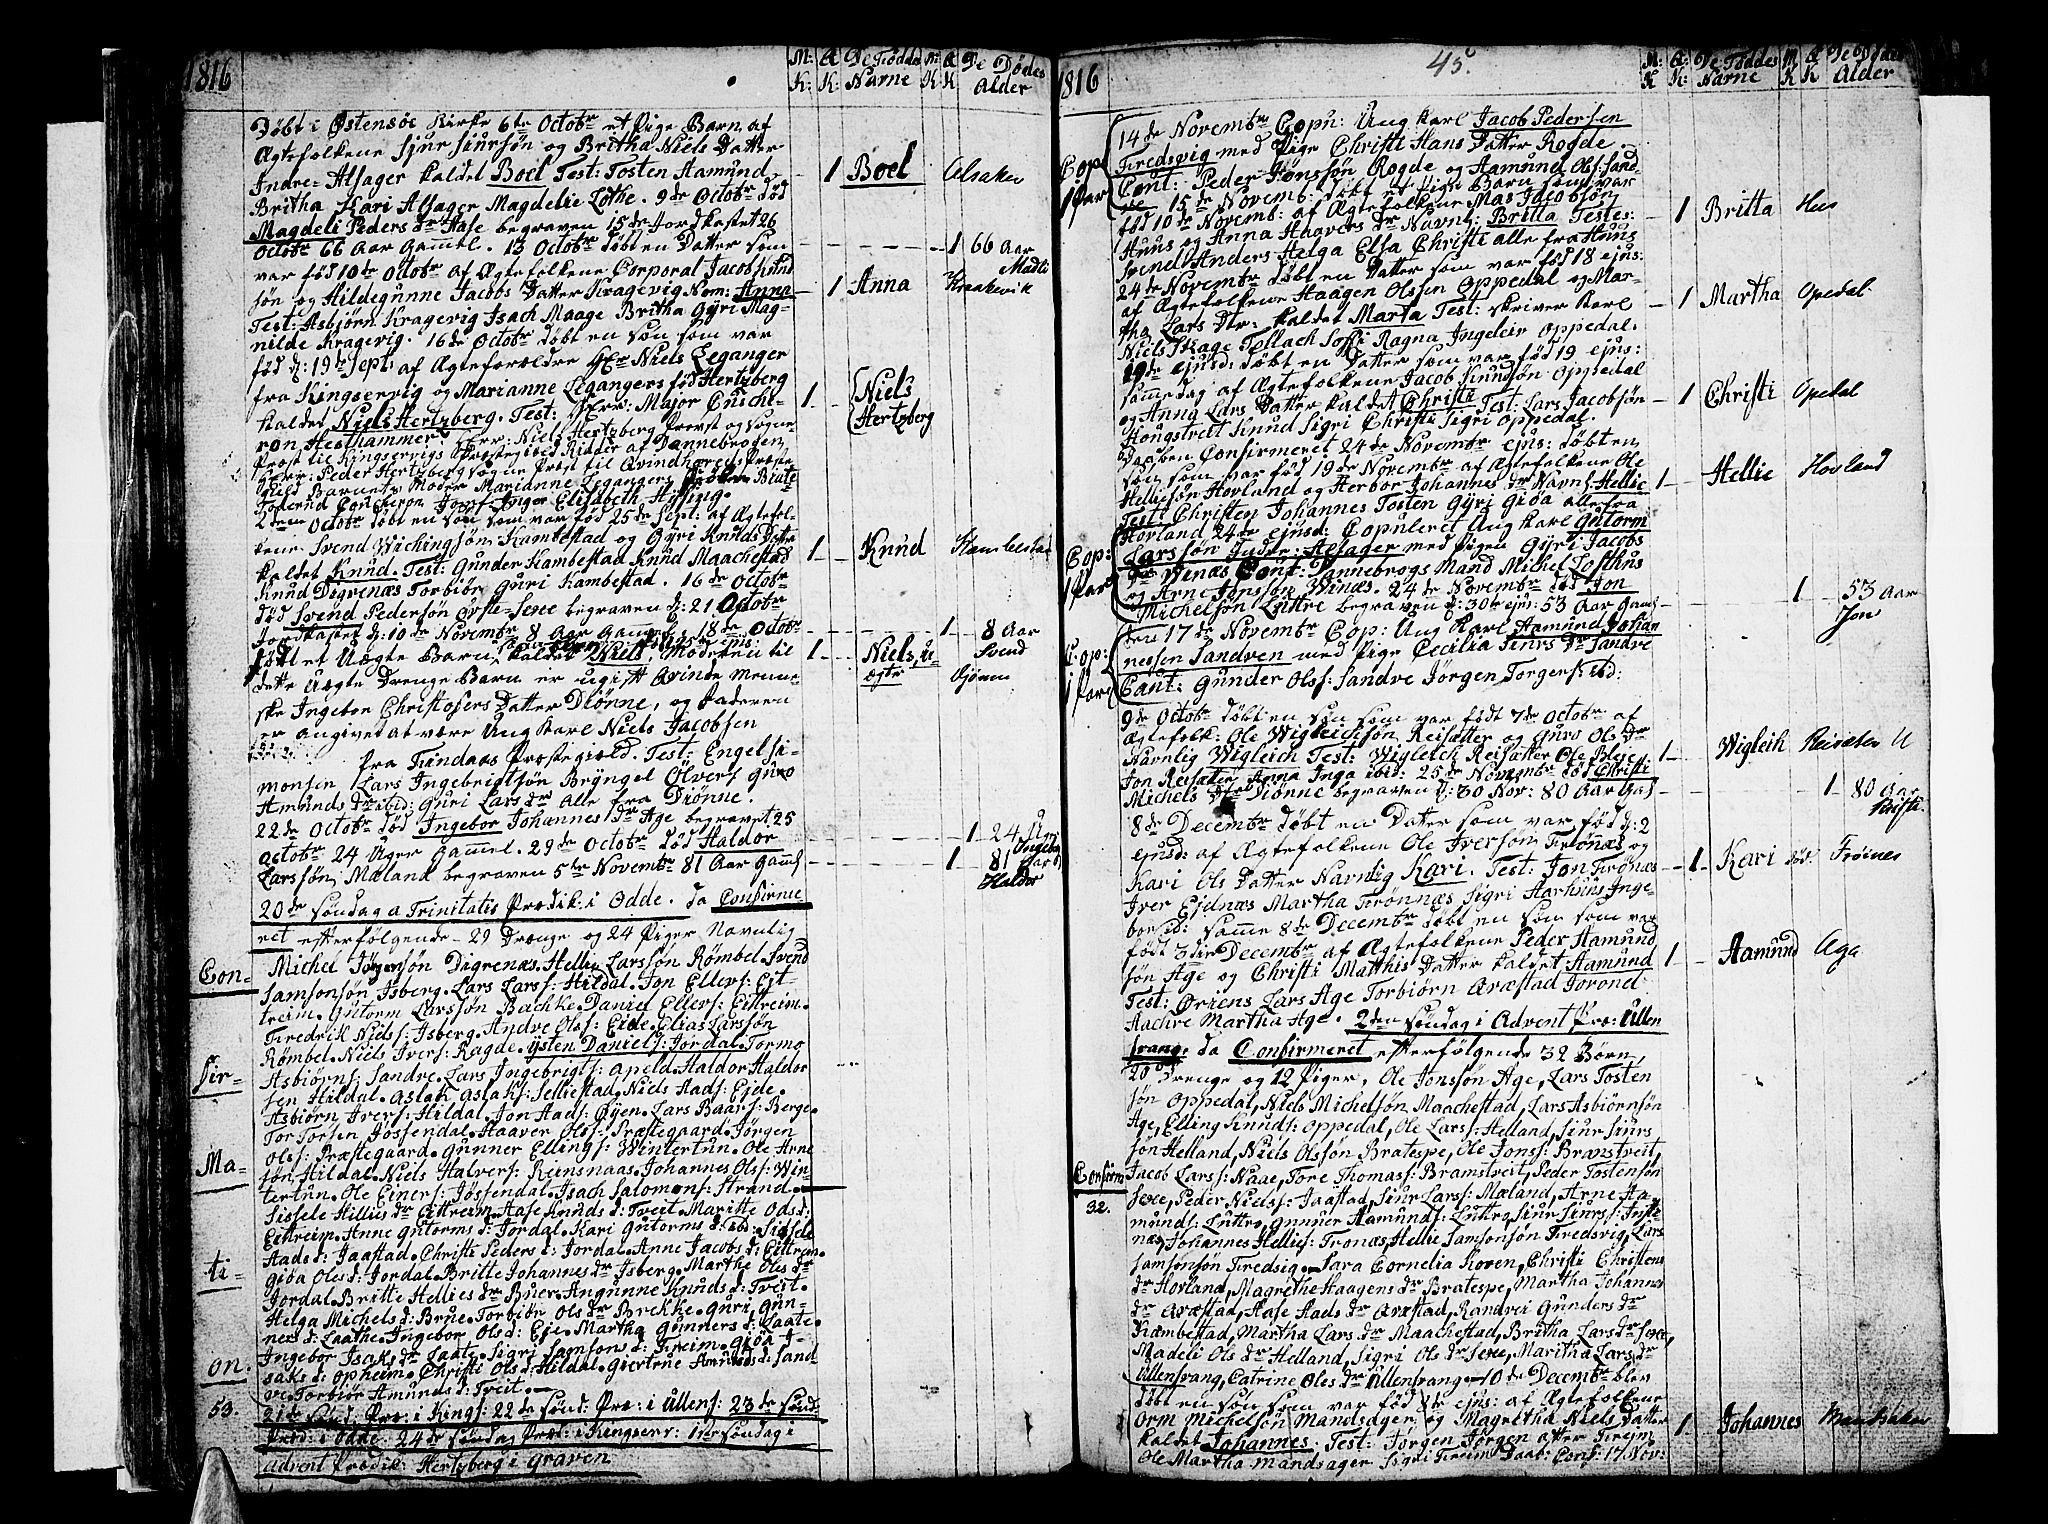 1816
M: Æ De Fødde M: Æ De Dødes
K: K: Navne K K Alder
Døbt i Østensøe Kirke 6te Octobr et Pige Barn af
Ægtefolkene Sjur Siursøn og Britha Niels Datter
Indre-Alsager kaldet Boel Test: Tosten Aamund
Britha Kari Alsager Magdelie Lothe. 9de Octobr død
Magdeli Peders dr Hase begraven 15de Jordkastet 26
Octobr 66 Aar Gamel. 13 Octobr døbt en Datter som
var fød 10de Octobr af Ægtefolkene Corporal Jacob
søn og Hildegunne Jacobs Datter Kragevig Nom: Anna
Test: Asbjørn Kragevig Isach Maage Britha Gyri Mag-
nilde Kragevig. 16de Octobr døbt en søn som var
fød d: 19de Sept: af Ægteforældre Hr Niels Leganger
fra Kingservig og Marianne Legangers fød Hertzberg
kaldet Niels Hertzberg. Test: Herr: Major
ron Hesthammer Herr: Niels Hertzberg Provst og Sogne-
Præst til Kingservigs Præstegield Ridder af Dannebrogen
Herr: Peder Hertzberg Sogne Præst til Qvindherreds Præste-
gield Barnets Moder Marianne Legangers
Inger Elisabeth
Octobr døbt en søn som var fød 25de Sept: af Ægtefol-
kene Svend Wichingsøn Kambestad og Gyri Knuds Datter
kaldet Knud. Test: Gunder Kambestad Knud Maachestad
Knud Digrenæs Torbiør Guri Kambestad. 16de Octobr
død Svend Pedersøn Øvste-Sexe begraven d: 21 Octobr
Jordkastet d: 10de Novembr 8 Aar Gamel. 18de Octobr
født et Uægte Barn kaldet Niels, Moderen til
dette Uægte Drenge Barn er ugift Qvinde Menne-
ske Ingebor Christophers Datter Diønne, og Faderen
er angived at være Ung Karl Niels Jacobsen
fra Findaas Præstegield. Test: Engel Si-
monsen Lars Ingebrigtsøn Bryngel Olvers Guro
Amunds dr ibid: Guri Lars dr alle fra Diønne.
22de Octobr død Ingebor Johannes dr Age begravet 25
Octobr 24 Uger Gammel. 29de Octobr død Haldor
Larssøn Mæland begraven 5te Novembr 81 Aar Gaml
20de Søndag a Trinitatis Prædik: i Odde. da Confirme-
ret efterfølgende - 29 Drenge og 24 Piger Navnlig
Michel Jørgensøn Digrenæs. Hellie Larssøn Rømbel. Svend
Samsonsøn Isberg. Lars Larss: Hildal. Jon Ellers: Eit-
treim. Gutorm Larssøn Bachke. Daniel Ellers: Eittreim.
Fredrik Niels: Isberg. Andre Olss: Eide. Elias Larssøn
Rømbel. Niels Ivers: Ragde. Ysten Daniels: Jordal. Tormo
Asbiørns: Sandre. Lars Ingebrigts: Apeld. Haldor Haldor
sen Hildal. Aslak Aslaks: Selliestad. Niels Aads: Eide.
Asbiørn Ivers: Hildal. Jon Aads: Øyen. Lars Baars: Berge.
Tor Torsen Jøssendal. Haaver Olss: Præstegaard. Jørgen
Olss: Præstegaard. Gunner Ellings: Wintertun. Ole Arne
søn Hildal. Niels Halvers: Reinsnaas. Johannes Olss: Win-
tertun. Ole Einers: Jøssendal. Isach Salomons: Strand.
Sissele Hellies dr Eittreim. Aase Amnds d: Treit. Maritte Ods d:
Eittreim. Anne Gutorms d: Jordal. Kari Gutorms d: ibid: Sissele
Aads d: Jaastad. Christi Peders d: Jordal. Anne Jacobs d: Eittreim.
Giøa Oles d: Jordal. Britte Johannes dr Isberg. Marthe Oles dr
Jordal. Britte Hellies dr Buer. Angunne Knuds d: Treit.
Helga Michels d: Brue. Torbiør Ols dr Brekke. Guri Gun-
ners d: Laathe. Ingebor Ols d: Eje. Martha Gunners d: Laate.
Ingebor Isaks dr Laate. Sigri Samsons d: Freim. Giøa I-
saks d: Opheim. Christi Ols d: Hildal. Giertrue Amunds d: Sand-
ve. Torbiør Amunds d: Treit.
21de Sønd: Præ: i Kings: 22de Sønd: Præ: i Ullens: 23de Sønd:
Præd: i Odde. 24de Søndag Præd: i Kingserv: 1ste Søndag i
Advent Prædik: Hertzberg i Graven
Con-
fir-
Ma-
ti-
on.
53.
1 Boel Alsaker
1 66 Aar
Madli
1 Anna Kraakevik
1 Niels
Hertzberg
1 Knud Kambestad
1 8 Aar
Svend
1 Niels, u-
ægte Djønne
1 24 Ugr
Ingebor
1 81 Aar
Haldor
1816
45.
M: Æ: De Føddes M Æ De Dødes
K K: Navne K K Alder
14de Novembr Copu: Ung Karl Jacob Pedersen
Fredsvig med Pige Christi Hans Datter Rogde.
Caut: Peder Jonssøn Rogde og Aamund Olss: Sand-
ve. 15de Novemb: døbt et Pige Barn som var
fød 10de Novemb: af Ægtefolkene Mas Jacobsøn
Huus og Anna Haavers dr Navnl: Britta Testes:
Svend Anders Helga Elsa Christi alle fra Huus
24de Novembr døbt en Datter som var fød 18 ejus:
af Ægtefolkene Haagen Olssen Oppedal og Mar-
tha Lars dtr: kaldet Marta Test: Skriver Karl
Niels Skage Tollach Ragna Ingeleir Oppedal.
døbt en Datter som var fød 19 ejus:
samedag af Ægtefolkene Jacob Knudsøn Oppedal
og Anna Lars Datter kaldet Christi Test: Lars Jacobsøn
Kongstveit Knud Sigri Christi Sigri Oppedal.
Daaben Confirmeret 24de Novembr ejus: døbt en
søn som var fød 19de Novembr af Ægtefolkene Ole
Helliesøn Hovland og Herbor Johannes dr Navnl: Hellie
Test: Christen Johannes Tosten Gyri Giøa alle fra
Hovland. 24de ejusd: Copuleret Ung Karl Gutorm
Larssøn Indre: Alsager med Pigen Gyri Jacobs
dr Winæs Caut: Dannebrogs Mand Michel Lofthus
og Arne Jonssøn Winæs. 24de Novembr død Jon
Michelsøn Luttre begraven d: 30te ejus: 53 Aar Gaml
den 17de Novembr Cop: Ung Karl Aamund Johan
nessen Sandven med Pige Cecilia Siurs dr Sandve
Caut: Gunder Olss: Sandre Jørgen Torgers: ibid:
9de Octobr døbt en søn som var født 7de Octobr af
Ægtefolk: Ole Wigleichsøn Reisæter og Guro Ols dr
Navnlig Wigleich Test: Wigleich Reisæter Ole Bleie
Jon Reisæter Anna Inga ibid: 25de Novembr død Christi
Michels dtr Diønne begraven d: 30 Nov: 80 Aar Gal
8de Decembr døbt en Datter som var fød d: 2
ejusd: af Ægtefolkene Ole Iversøn Frønæs og
Kari Ols Datter Navnlig Kari. Test: Jon Frønæs
Iver Ejdnæs Martha Frønnæs Sigri Aarhuus Inge-
bor id: samme 8de Decembr døbt en søn som var
født 3die Decembr af Ægtefolkene Peder Aamund
søn Age og Christi Matthis Datter kaldet Aamund
Test: Øriens Lars Age Torbiørn Aræstad Jorond
Aachre Martha Age. 2den Søndag i Advent Præ: Ullen
svang. da Confirmeret efterfølgende 32 Børn,
20 Drenge og 12 Piger, Ole Jonssøn Age, Lars Tosten
søn Oppedal, Niels Michelsøn Maachestad, Lars Asbiørnsøn
Age, Elling Knuds: Oppedal, Ole Lars: Helland, Siur Siurs
søn Helland, Niels Olssøn Bratespe, Ole Jonss: Bramstveit,
Jacob Lars: Naae, Tore Thomas: Bramstveit, Peder Tostensøn
Sexe, Peder Niels: Jaastad, Siur Lars: Mæland, Arne Aa-
munds: Luttro, Gunner Aamunds: Luttro, Siur Siurs:
næs, Johannes Hellies: Fronæs, Hellie Samsonsøn Fredsvig, Lars
Samsonsøn Fredsig. Sara Cornelia Koren, Christi Christens
dr Hovland, Magrethe Haagens dr Bratespe, Martha Johannes
dr Aræstad, Aase Aads dr Aræstad, Randvei Gunders dr
Kambestad, Martha Lars dr Maachestad, Britha Lars dr Sexe,
Madeli Ols dr Helland, Sigri Ols dr Sexe, Maritha Lars dr
Ullensvang, Catrine Oles dr Ullensvang. 10de Decembr blev
døbt en søn som var fød ejus: af Ægtefolkene
Orm Michelsøn Mandsager og Magretha Niels Datter
kaldet Johannes. Test: Jørgen Jørgen atter Freim
Ole Martha Mandsager Sigri Freim Daab: Conf: 17 Nov:
Cop
1 Par
Cop:
1 Par
Cop:
1 Par
Confirm
32.
1 Britta Hus
1 Martha Opedal
1 Christi Opedal
1 Hellie Hovland
1 53 Aar
Jon
1 Wigleih Reisæter U
1 80 Aar
Kristi
1 Kari død. Frøines
1 Aamund Aga
1 Johannes Mansaker